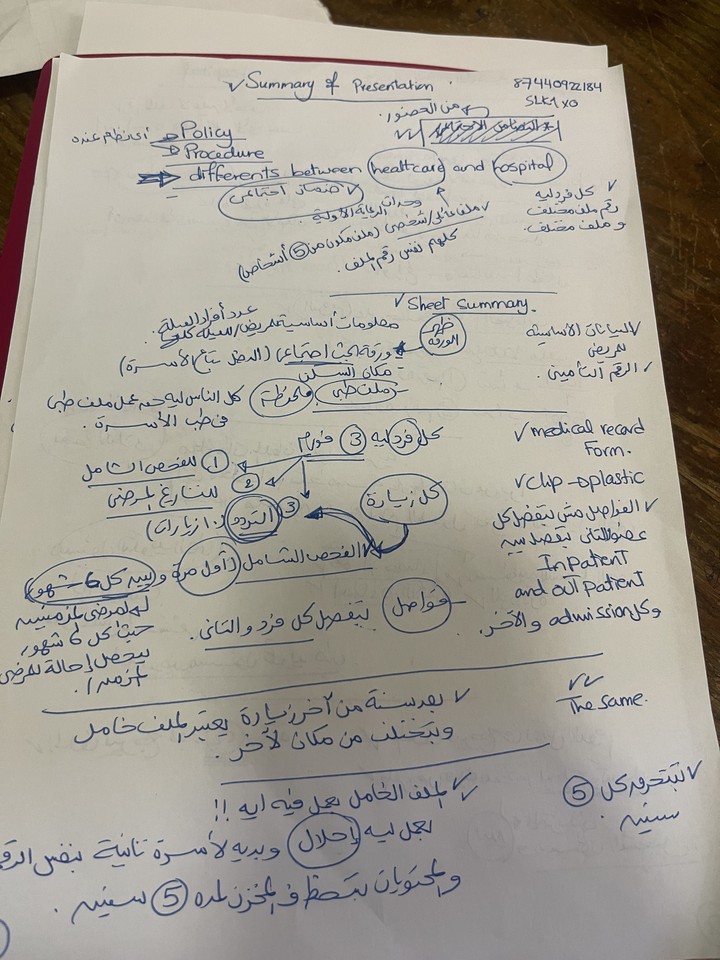 ✓ Summary of Presentation
87440922184
SLK1 XO
من الحضور
أى نظم عنده → Policy
→ Procedure
differents between healthcare and hospital
✓ ضمان اجتماعى
وحدات الرعاية الأولية
✓ ملف عائلى/شخصى (ملف مكون من 5 أشخاص)
كلهم نفس رقم الملف.
✓ كل فرد ليه
رقم ملف مختلف
و ملف مختلف.
✓ Sheet Summary.
ظهر الورقة
معلومات أساسية للمريض/للعيلة كلها
عدد أفراد العيلة.
ورقة بحث اجتماعى (الدخل بتاع الأسرة)
- مكان السكن
- ملف طبى
ملحوظة
كل الناس ليه حق عمل ملف طبى
فى طب الأسرة.
✓ البيانات الأساسية
للمريض
✓ الرقم التأمينى.
كل فرد ليه 3 فورم
1 للفحص الشامل
2 للتاريخ المرضى
3 التردد (10 زيارات)
كل زيارة
الفحص الشامل (أول مرة) وبيبه كل 6 شهور
لمرضى المزمنين
حيث كل 6 شهور
بيحصل إحالة لمرضى
المزمن.
- فواصل بتفصل كل فرد والتانى.
✓ medical record
Form.
✓ clip → plastic
✓ الفواصل مش بتفصل كل
عضو للتانى بتفصل بين
In patient
and out patient
وكل admission والآخر.
✓ بعد سنة من آخر زيارة يعتبر الملف خامل
وبتختلف من مكان لآخر.
✓✓
The same.
✓✓ الملف الخامل بعمل فيه ايه !!
بعمل ليه إحلال وبديه لأسرة تانية بنفس الرقم
والمحتويات بتتحفظ فى المخزن لمده 5 سنين.
✓ بتتحرق كل 5
سنين.